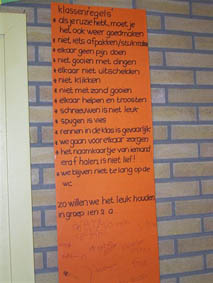 klassenregels
* als je ruzie hebt, moet je
het ook weer goedmaken
* niet iets afpakken/stukmaken
* elkaar geen pijn doen
* niet gooien met dingen
* elkaar niet uitschelden
* niet klikken
* niet met zand gooien
* elkaar helpen en troosten
* schreeuwen is niet leuk
* spugen is vies
* rennen in de klas is gevaarlijk
* we gaan voor elkaar zorgen
* het naamkaartje van iemand
eraf halen, is niet lief!
* we blijven niet te lang op de
wc
zo willen we het leuk houden
in groep 1 en 2 a